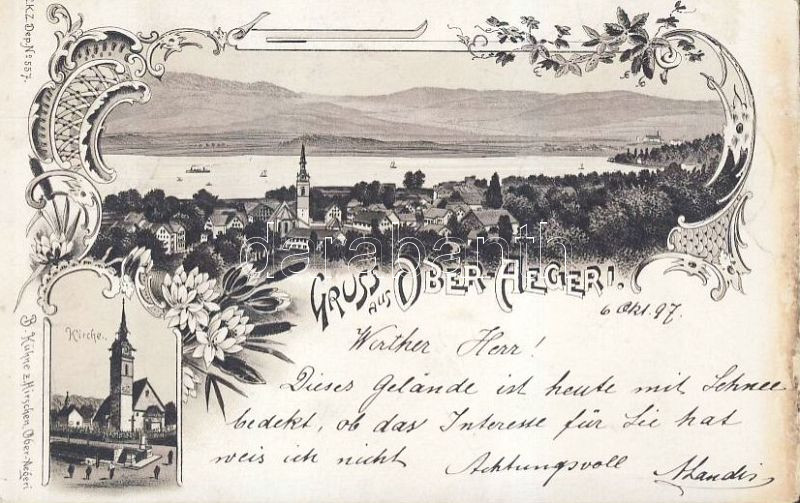 C.K.Z Dep. No 557.
GRUSS AUS OBER-AEGERI.
darabanth
6 Okt. 97.
Kirche.
B. Kühne z. Hirschen, Ober-Aegeri
Werther Herr!
Dieses Gelände ist heute mit Schnee
bedekt, ob das Interesse für Sie hat
weis ich nicht Achtungsvoll ALandis